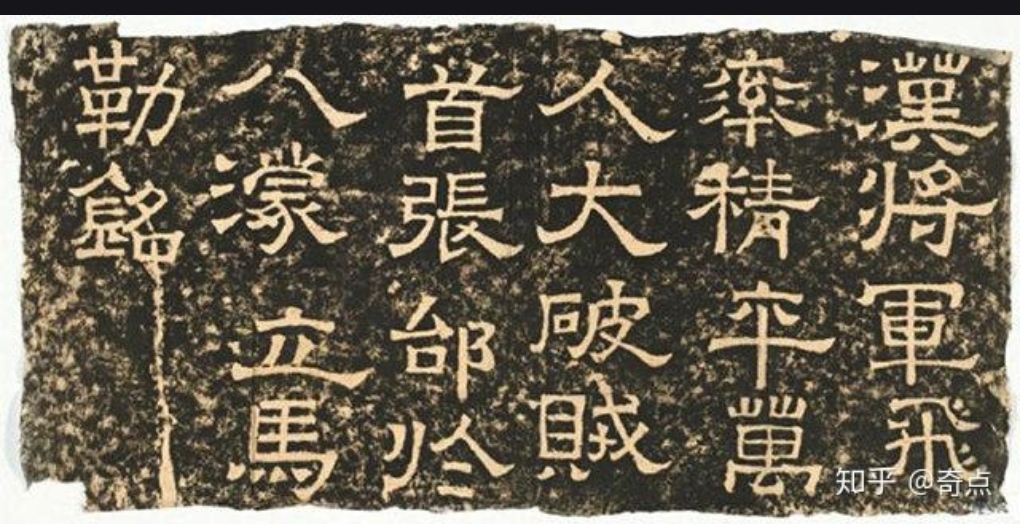 漢將軍飛
率精卒萬
人大破賊
首張郃於
八濛立馬
勒銘
知乎 @奇点